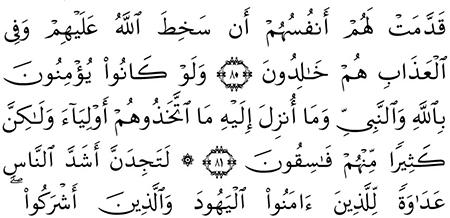 قَدَّمَتْ لَهُمْ أَنفُسُهُمْ أَن سَخِطَ ٱللَّهُ عَلَيْهِمْ وَفِى
ٱلْعَذَابِ هُمْ خَـٰلِدُونَ ٨٠ وَلَوْ كَانُوا۟ يُؤْمِنُونَ
بِٱللَّهِ وَٱلنَّبِىِّ وَمَآ أُنزِلَ إِلَيْهِ مَا ٱتَّخَذُوهُمْ أَوْلِيَآءَ وَلَـٰكِنَّ
كَثِيرًا مِّنْهُمْ فَـٰسِقُونَ ٨١ ۞ لَتَجِدَنَّ أَشَدَّ ٱلنَّاسِ
عَدَٰوَةً لِّلَّذِينَ ءَامَنُوا۟ ٱلْيَهُودَ وَٱلَّذِينَ أَشْرَكُوا۟